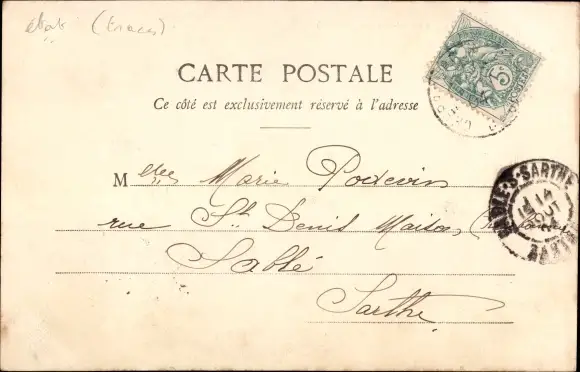 CARTE POSTALE
Ce côté est exclusivement réservé à l'adresse
Mlles Marie Podevin
rue St Denis Maison,
Sablé
Sarthe
5
SABLE-S-SARTHE
14